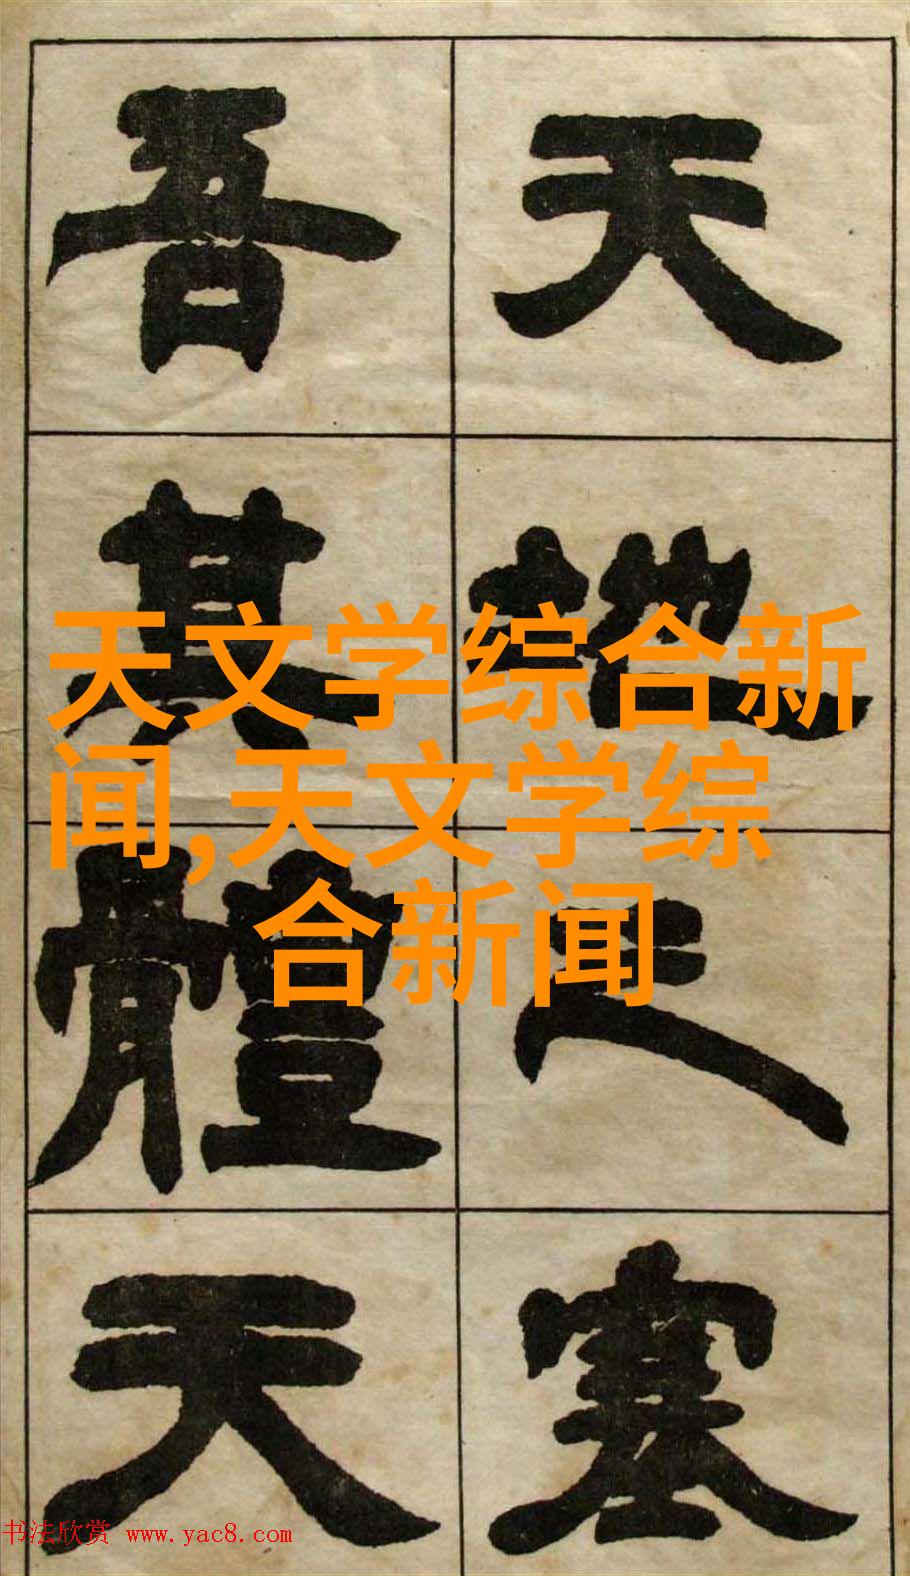 天地之塞
吾其體天
天文学综合新
闻,天文学综
合新闻
书法欣赏 www.yac8.com